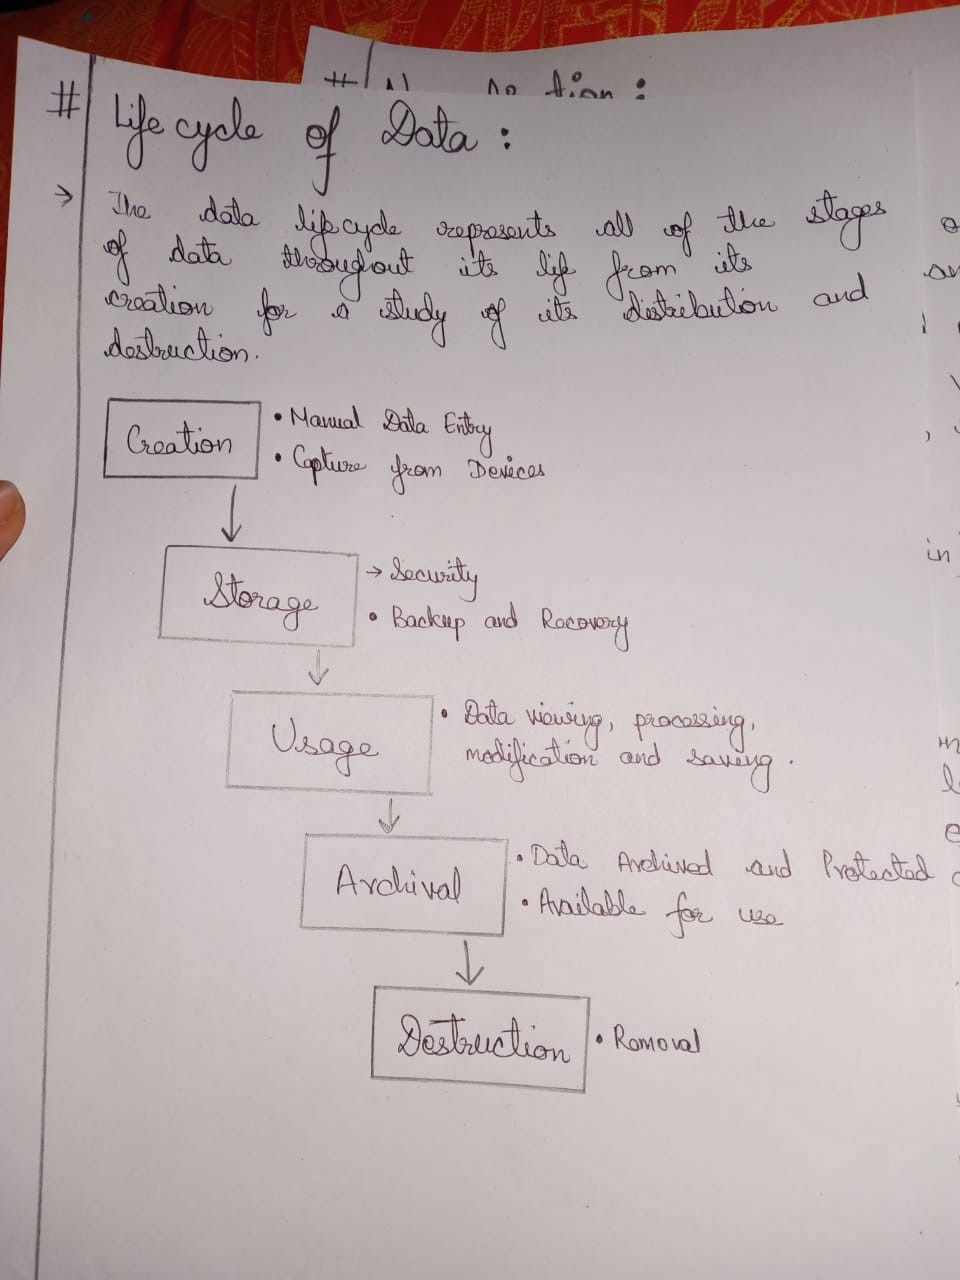 # Life cycle of Data :
→ The data life cycle represents all of the stages
of data throughout its life from its
creation for a study of its distribution and
destruction.
Creation
• Manual Data Entry
• Capture from Devices
Storage
→ Security
• Backup and Recovery
Usage
• Data viewing, processing,
modification and saving.
Archival
• Data Archived and Protected
• Available for use
Destruction
• Removal